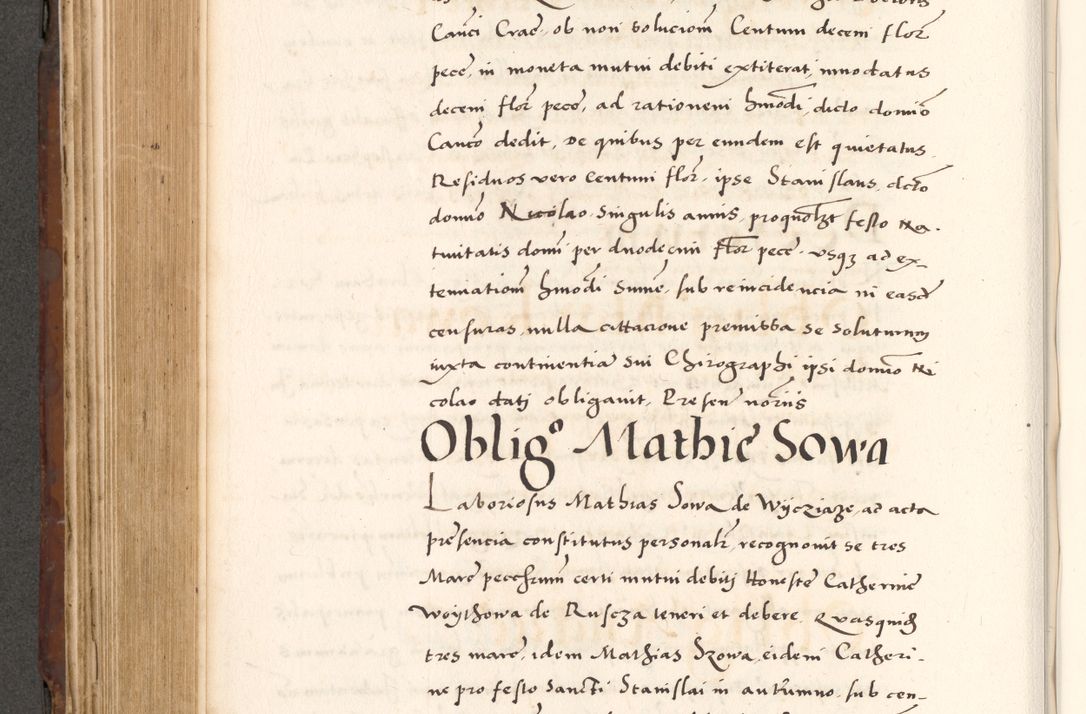 Canci Crac̄, ob non solucioñ Centum decem flor̄
pecc̄, in moneta mutui debiti extiterat, innodatus
decem flor̄ pecc̄, ad rationem hmōdi, dicto domīo
Canc̄o dedit, De quibus per eundem est quietatus.
Residuos vero Centum flor̄, ipse Stanislaus, dcto
domīo Nicolao singulis annis, pro quolzt festo Na-
tiuitatis domī per duodecim flor̄ pecc̄, vsqz ad ex-
tenuationē hmōdi sum̄e, sub reincidencia in easd̄
censuras, nulla cittacione premissa se soluturum
iuxta continentiā sui Chirographi ipsi domīo Ni
colao datj obligauit, Presen̄ nōriis
Obligo Mathiē Sowa
Laboriosus Mathias Sowa de Wyczjaze, ad acta
presencia constitutus personalr̄, recognouit se tres
Marc̄ pecchrum certi mutui debitj Honestē Catherinē
Woythowa de Ruscza teneri et debere, Quasquid̄
tres marc̄, idem Mathias Szowa, eidem Catheri-
ne pro festo Sancti Stanislai in autumno, sub cen-